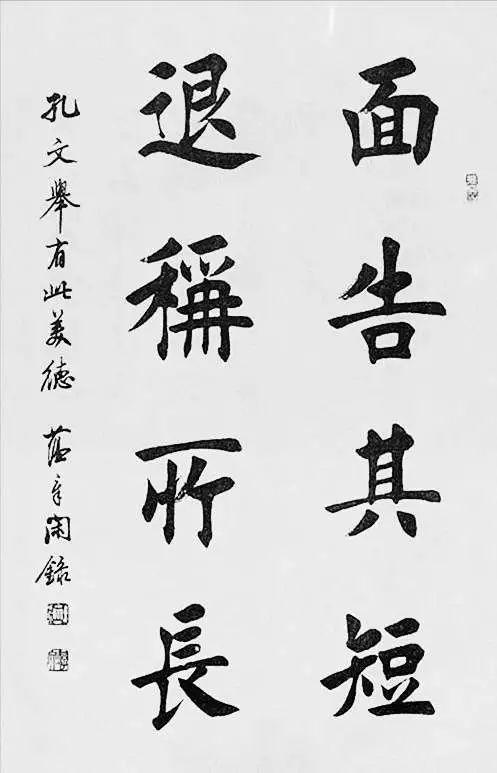 面告其短
退稱所長
孔文舉有此美德 範章閑錄